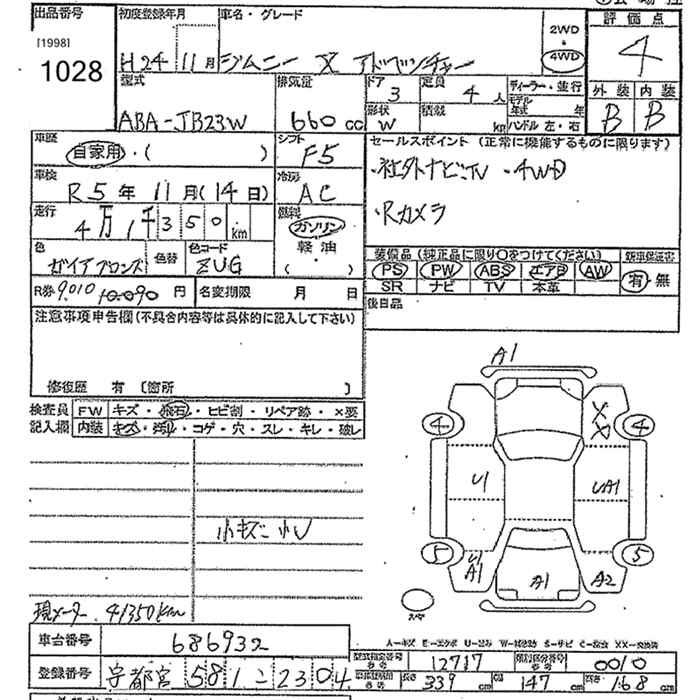 出品番号 初度登録年月 車名・グレード 評価点
[1998] 2WD
1028 H24 11月 ジムニー X アドベンチャー 4WD 4
型式 排気量 ドア 定員 ディーラー・並行 外装 内装
3 4人 モデル年式 年
ABA-JB23W 660cc 形状 W 積載 kg ハンドル 左・右 B B
車歴 シフト セールスポイント(正常に機能するものに限ります)
自家用・( ) F5 ・社外ナビ・TV ・4WD
車検 冷房
R5年 11月(14日) AC ・Rカメラ
走行 燃料
4万1千350km ガソリン
軽・油
色 色替 色コード 装備品(純正品に限り○をつけてください) 新車保証書
ガイアブロンズ ZUG ( ) PS PW ABS エアB AW 有・無
R券 9,010 10,090円 名変期限 月 日 SR ナビ TV 本革
後日品
注意事項申告欄(不具合内容等は具体的に記入して下さい)
修復歴 有 (箇所 )
検査員 FW キズ・飛石・ヒビ割・リペア跡・×要
記入欄 内装 キズ・汚れ・コゲ・穴・スレ・キレ・破レ
A1
X
X
4 4
U1 UA1
小キズ 小U
5 5
U1
A1 A1 A2
スペア
現メーター 41350km
A-キズ E-エクボ U-凹み W-補修跡 S-サビ C-腐食 XX-交換済
車台番号 686932 型式指定番号 12717 類別区分番号 0010
登録番号 宇都宮 581 こ 2304 長さ 339cm 幅 147cm 高さ 168cm